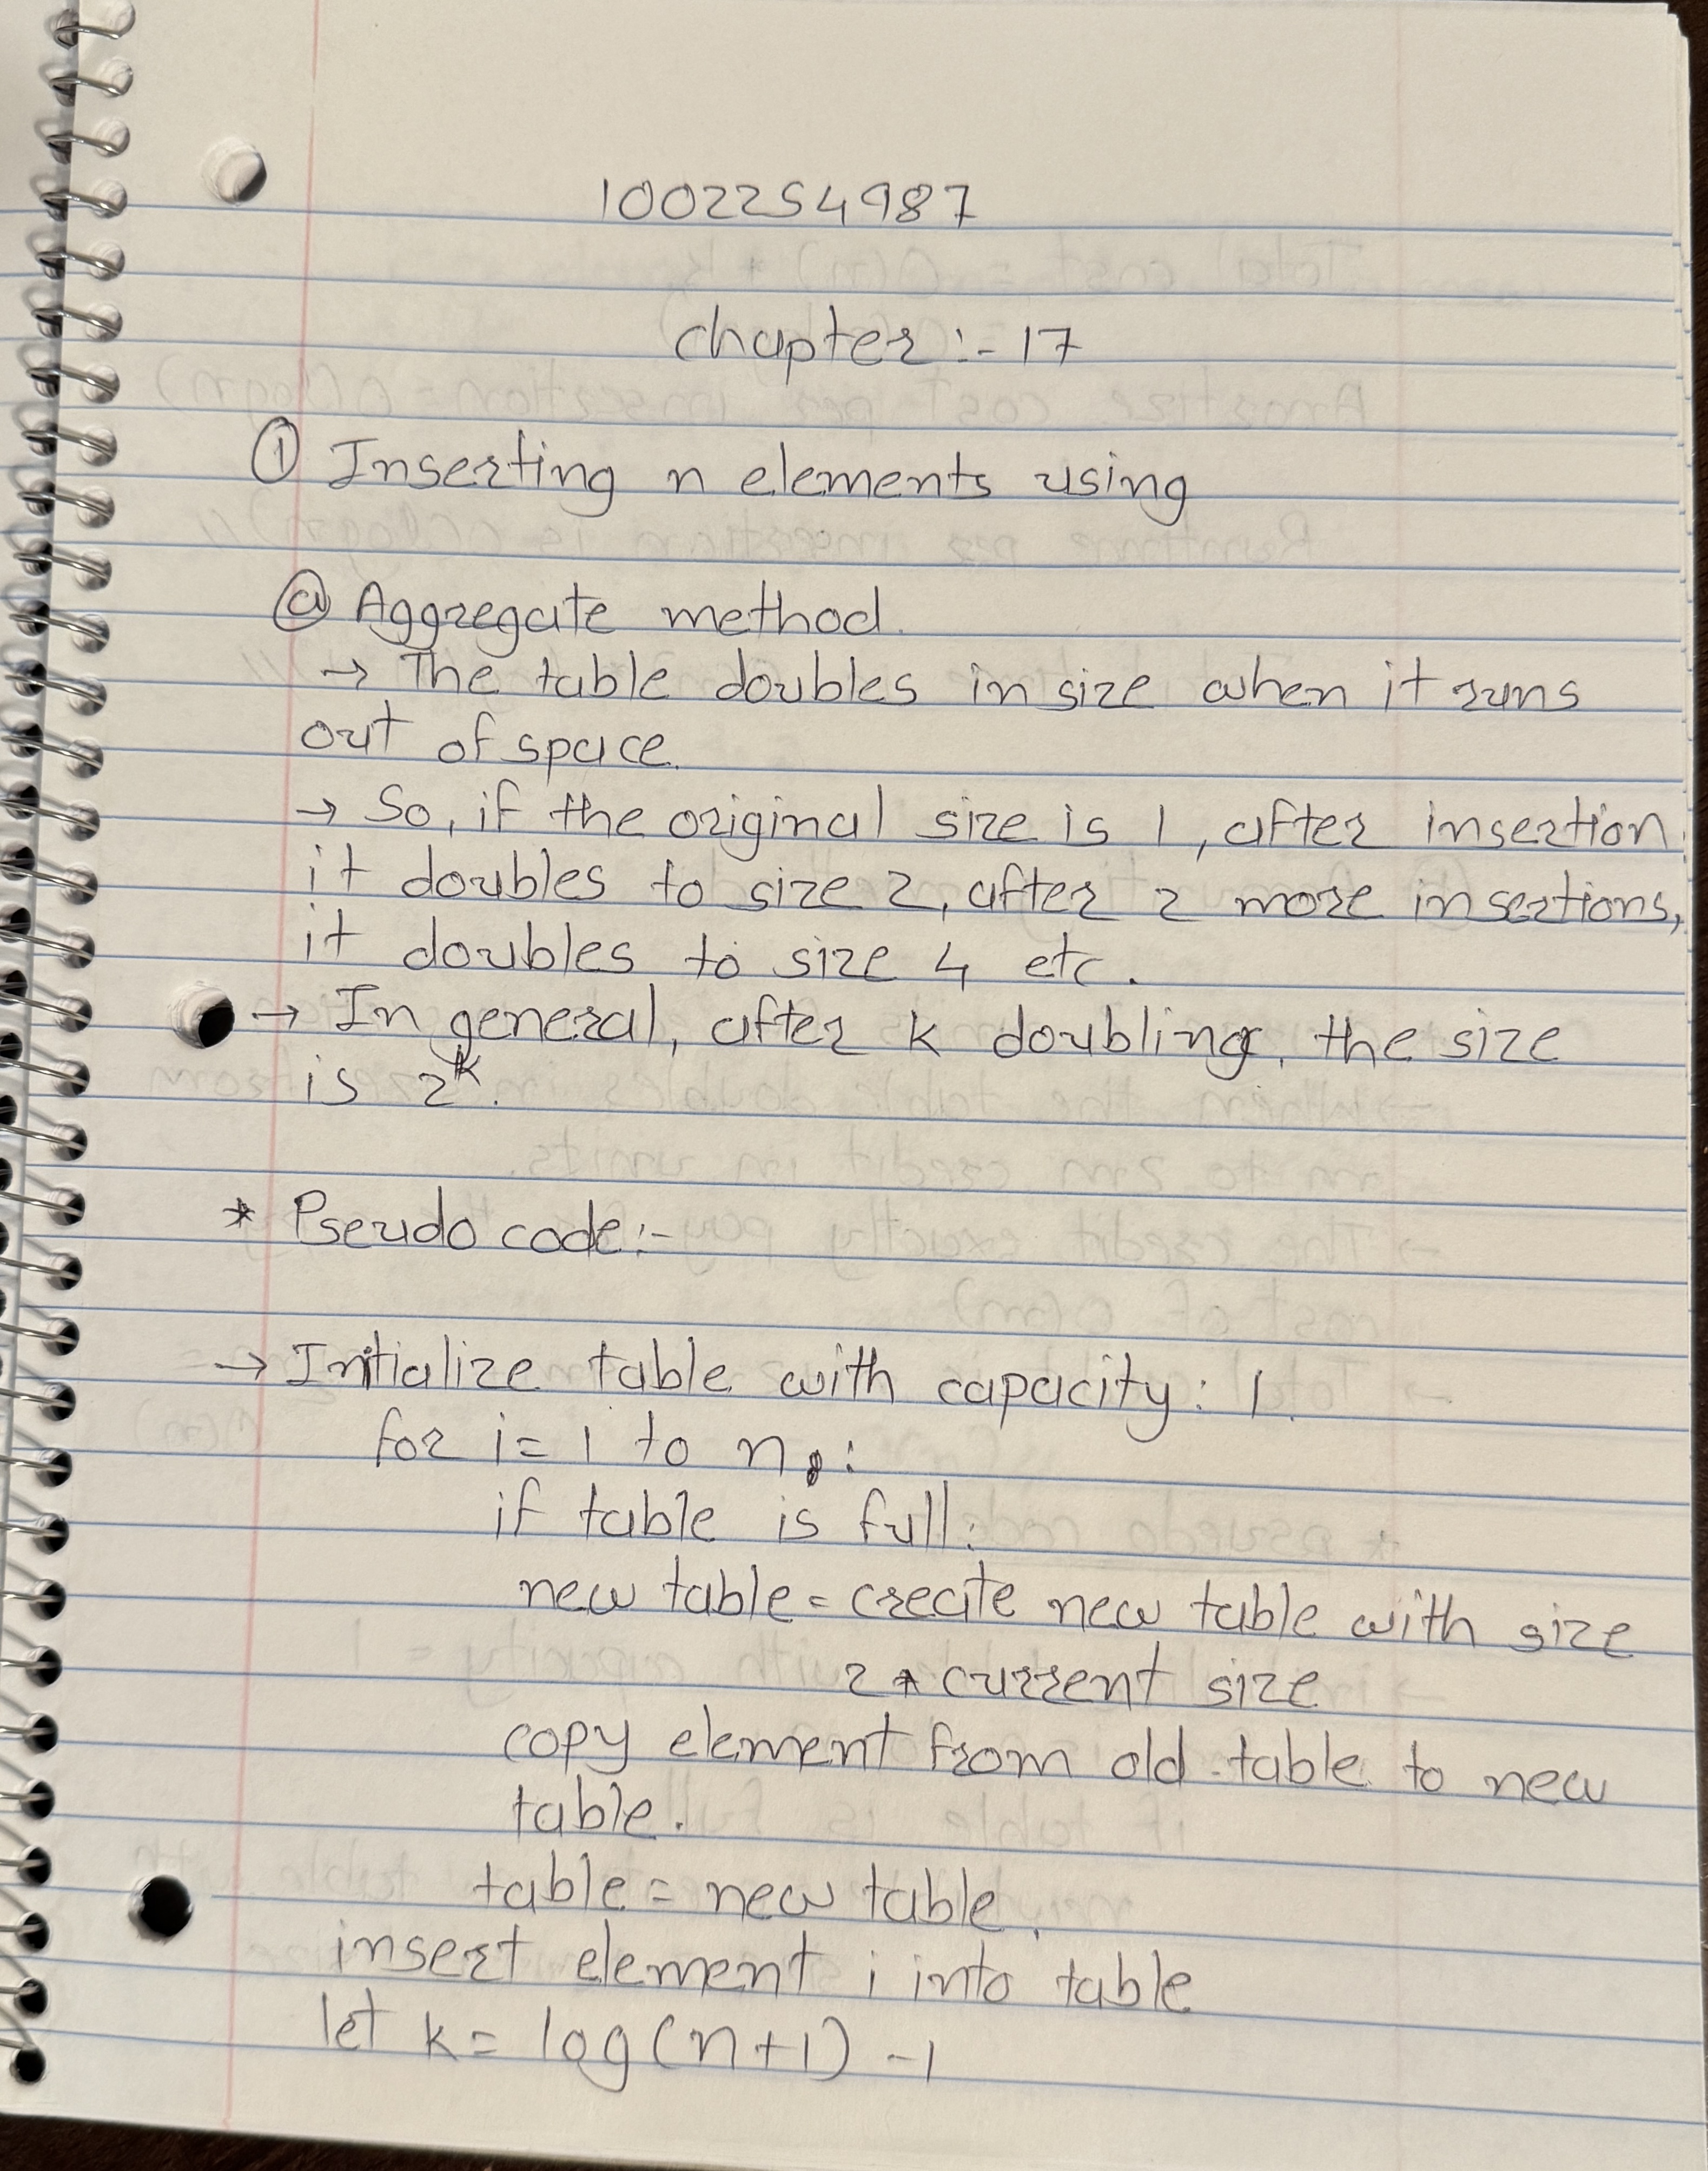 1002254987
chapter :- 17
① Inserting n elements using
ⓐ Aggregate method.
→ The table doubles in size when it runs
out of space.
→ So, if the original size is 1, after insertion
it doubles to size 2, after 2 more insertions,
it doubles to size 4 etc.
→ In general, after k doubling, the size
is 2^k.
* Pseudo code:-
→ Initialize table with capacity: 1.
for i = 1 to n :
if table is full:
new table = create new table with size
2 * current size
copy element from old table to new
table.
table = new table.
insert element i into table
let k = log(n+1) -1